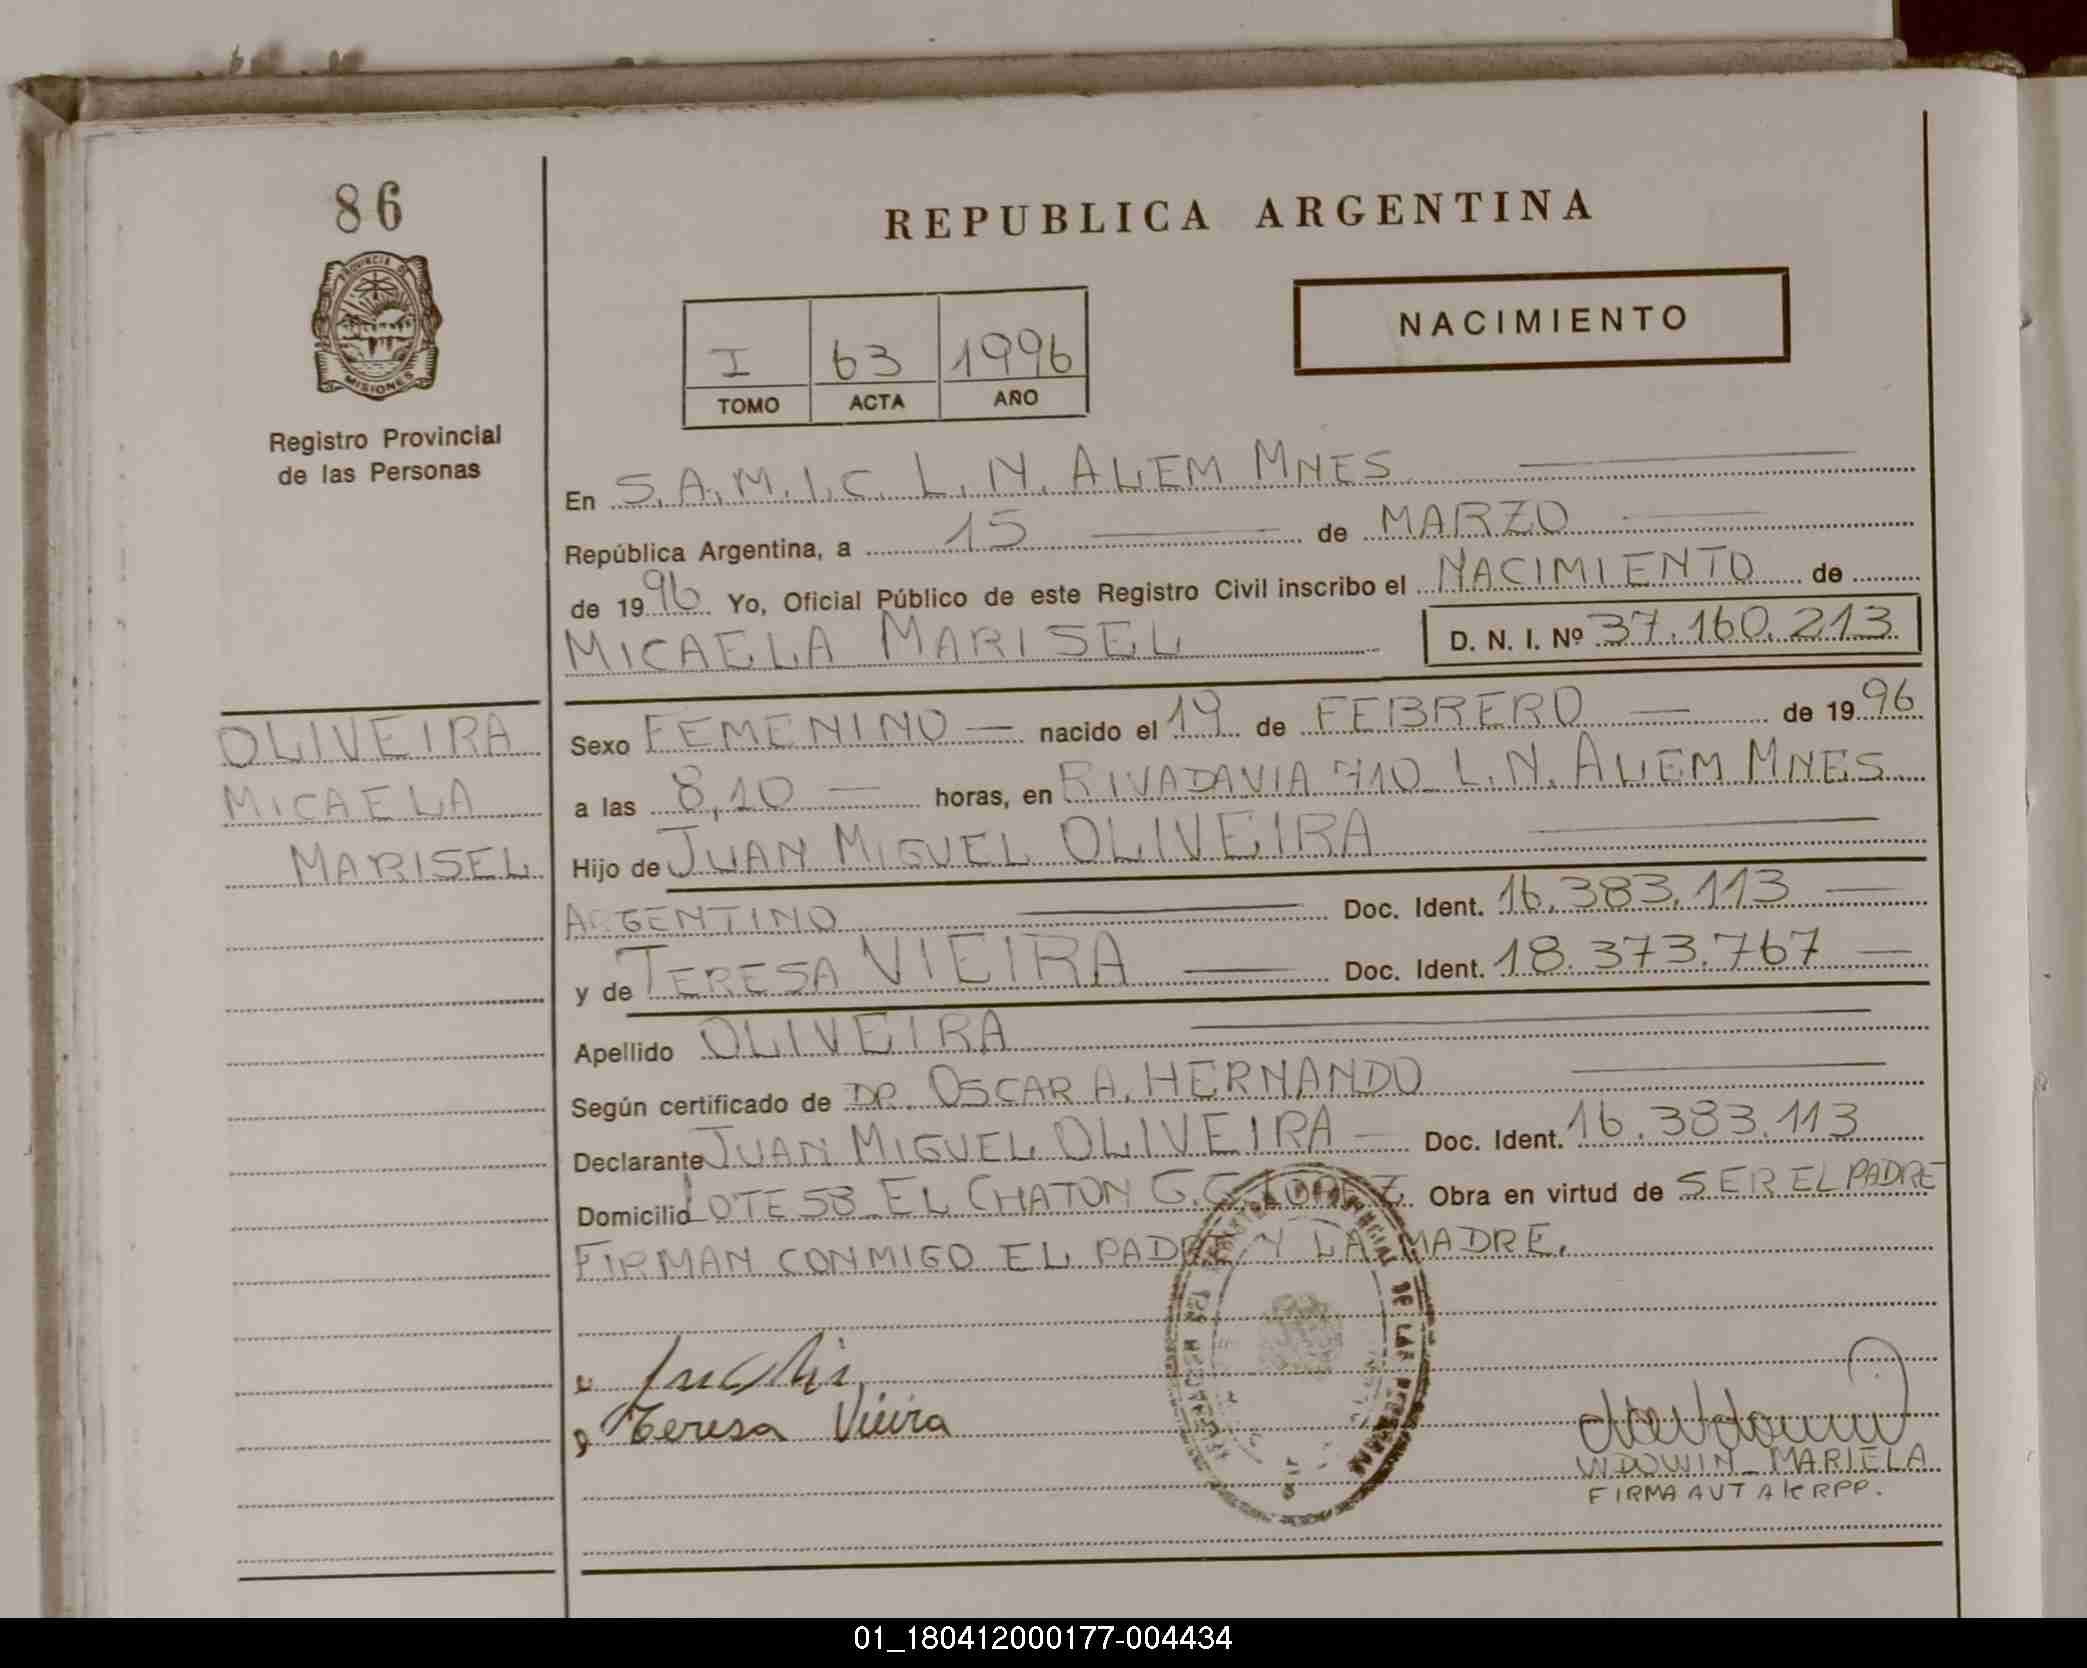 86
PROVINCIA DE
MISIONES
Registro Provincial
de las Personas
REPUBLICA ARGENTINA
NACIMIENTO
I 63 1996
TOMO ACTA AÑO
En S.A.M.I.C. L.N. ALEM MNES
República Argentina, a 15 de MARZO
de 1996 Yo, Oficial Público de este Registro Civil inscribo el NACIMIENTO de
MICAELA MARISEL D. N. I. Nº 37.160.213
OLIVEIRA
MICAELA
MARISEL
Sexo FEMENINO nacido el 19 de FEBRERO de 1996
a las 8,10 horas, en RIVADAVIA 710 L.N. ALEM MNES
Hijo de JUAN MIGUEL OLIVEIRA
ARGENTINO Doc. Ident. 16.383.113
y de TERESA VIEIRA Doc. Ident. 18.373.767
Apellido OLIVEIRA
Según certificado de DR. OSCAR A. HERNANDO
Declarante JUAN MIGUEL OLIVEIRA Doc. Ident. 16.383.113
Domicilio LOTE 58 EL CHATON G.C. LOPEZ Obra en virtud de SER EL PADRE
FIRMAN CONMIGO EL PADRE Y LA MADRE.
DE LAS PERSONAS
Teresa Vieira
WDOWIN - MARIELA
FIRMA AUT RPP.
01_180412000177-004434